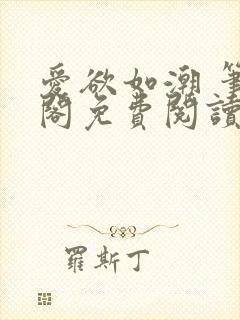 愛欲如潮 筆
閣免費閱讀
羅斯丁